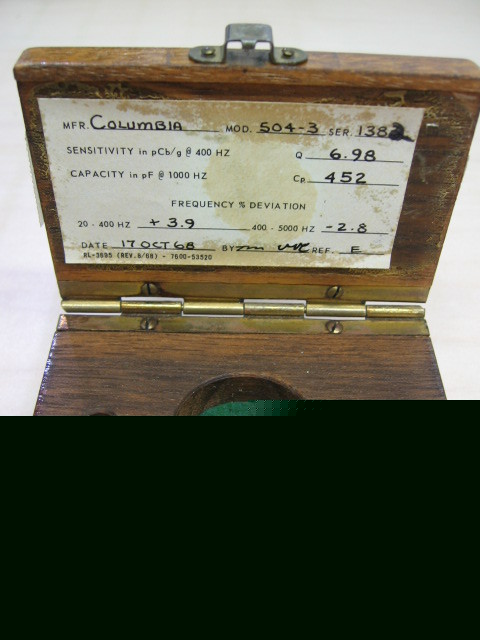 MFR. COLUMBIA MOD. 504-3 SER. 1382
SENSITIVITY in pCb/g @ 400 HZ Q 6.98
CAPACITY in pF @ 1000 HZ Cp 452
FREQUENCY % DEVIATION
20 - 400 HZ + 3.9 400 - 5000 HZ -2.8
DATE 17 OCT 68 BY REF. E
RL-3695 (REV. 6/68) - 7600-53520